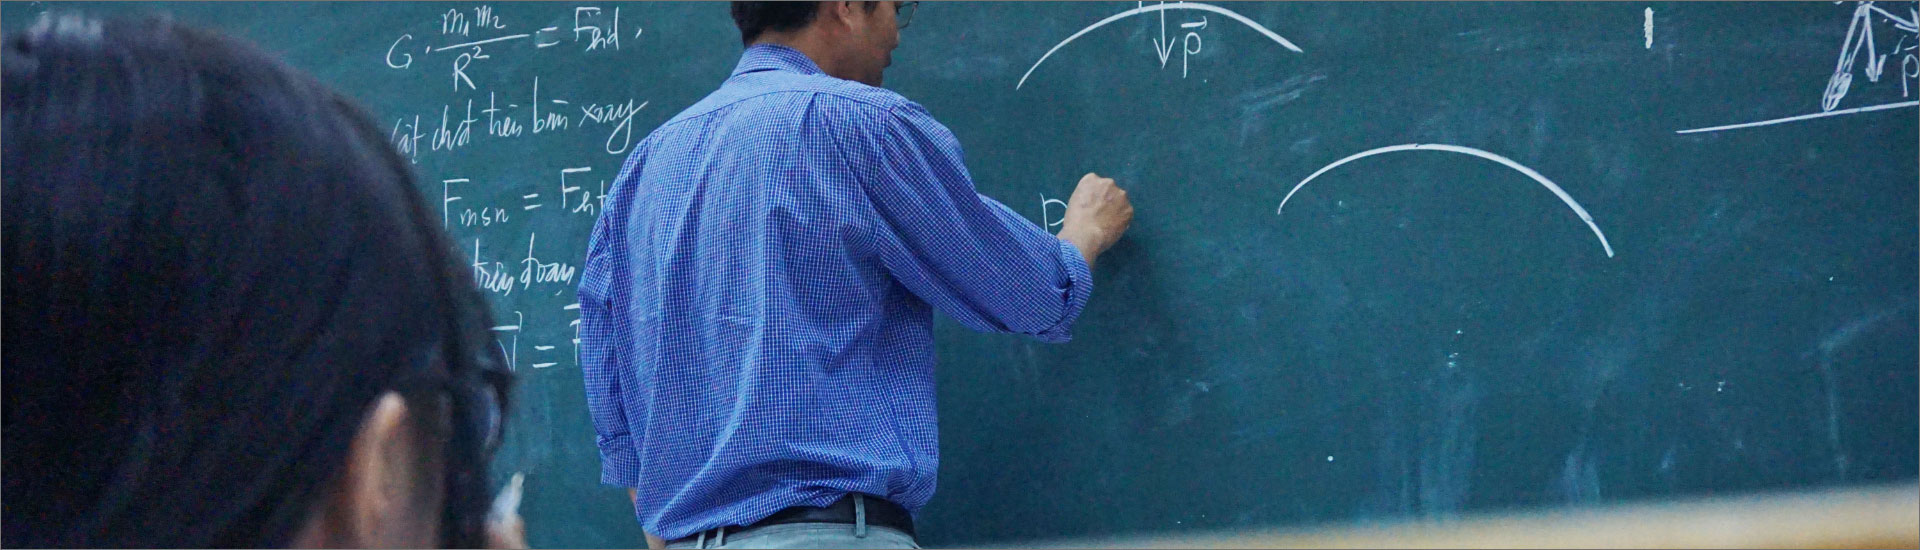 G. m₁m₂/R² = Fhd.
vật chđ trên bàn xoay
Fmsn = Fht
trên đoạn
N⃗ =
P⃗
P
P⃗